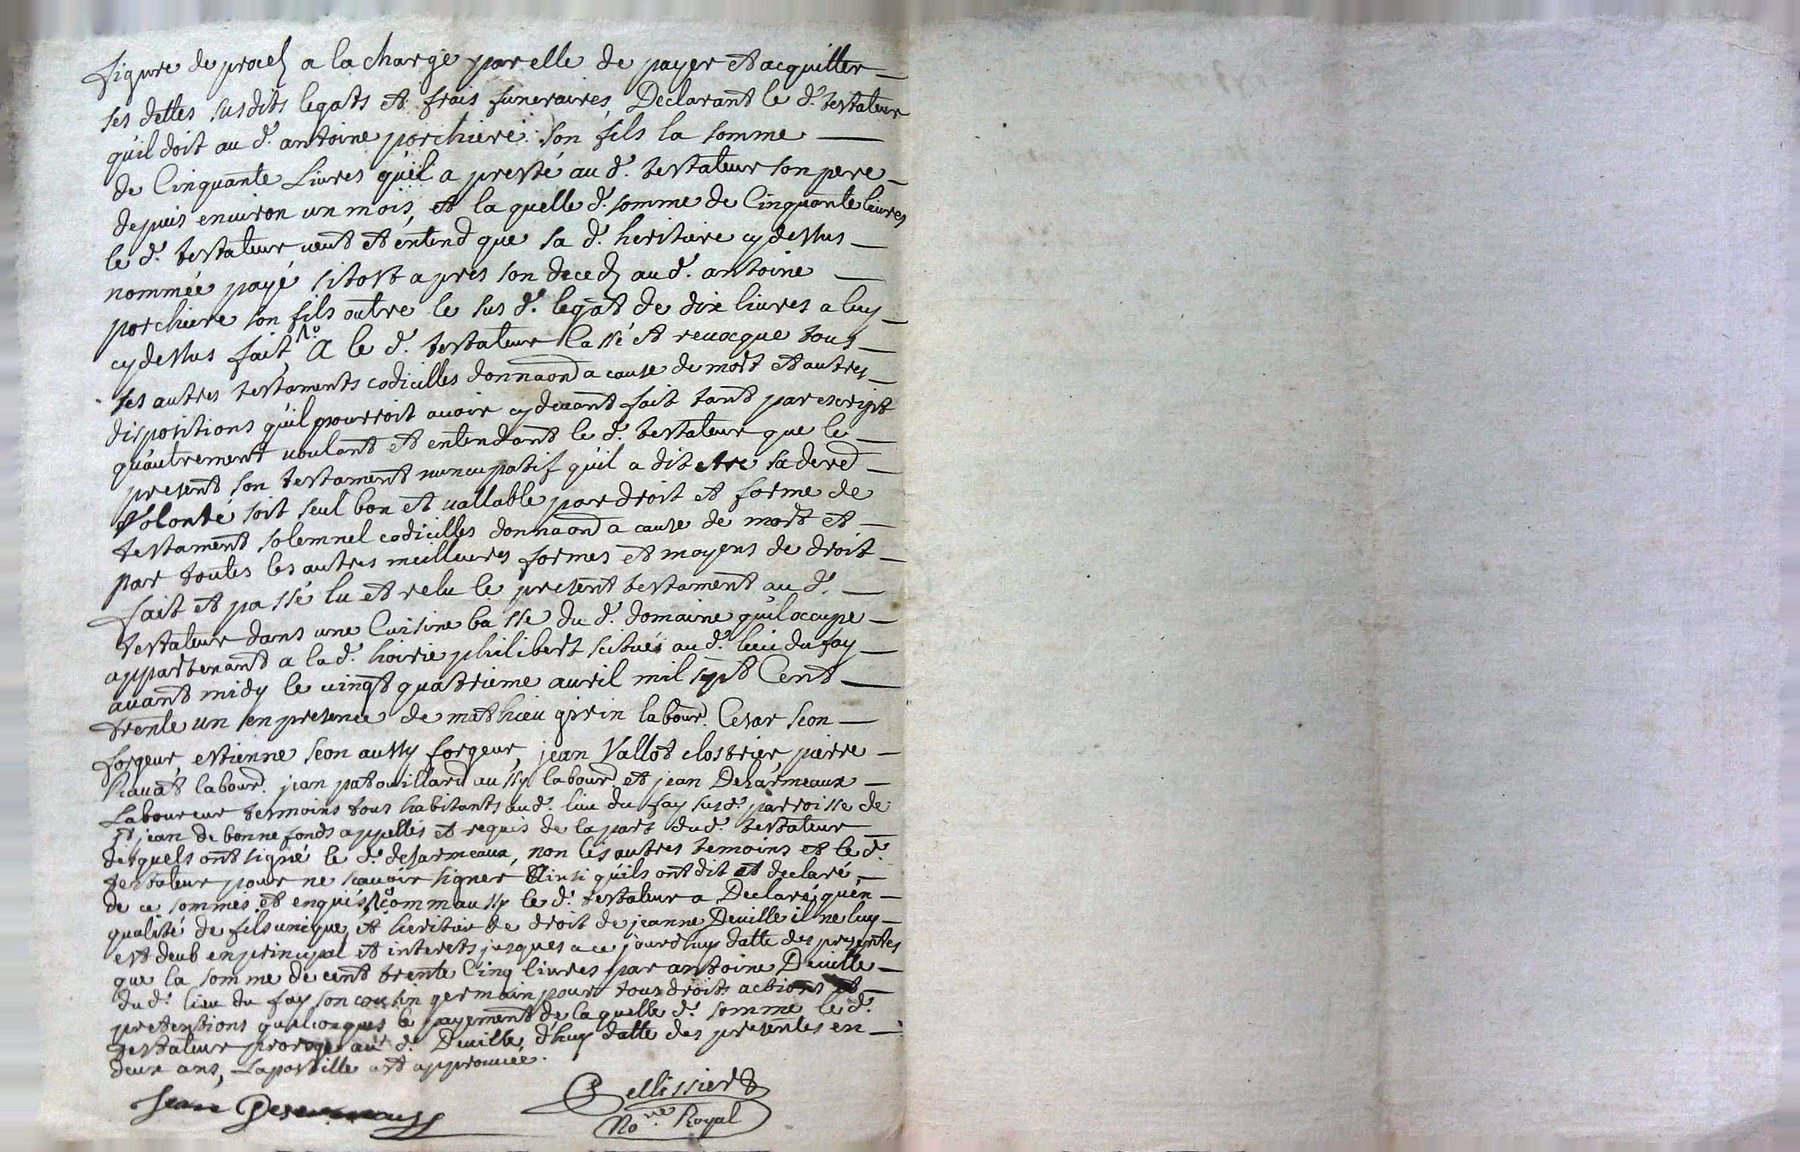 figure de proces a la charge par elle de payer et acquitter
ses dettes susdits legats et frais funeraires, Declarant le d. testateur
qu'il doit au d. antoine porchiere son fils la somme
de Cinquante Livres qu'il a presté au d. testateur son pere
depuis environ un mois, et la quelle d. somme de Cinquante livres
le d. testateur veut et entend que sa d. heritiere cy dessus
nommée payé sitost apres son deced au d. antoine
porchiere son fils outre le sus d. legat de dix livres a luy
cy dessus fait, A le d. testateur Cassé et revocque tous
ses autres testaments codicilles donnaond a cause de mort et autres
dispositions qu'il pourroit avoir cy devant fait tant par escript
qu'autrement voulant et entendant le d. testateur que le
present son testament nuncupatif qu'il a dit etre sa dere
volonté soit seul bon et vallable par droit et forme de
testament solemnel codicilles donnaond a cause de mort et
par toutes les autres meilleures formes et moyens de droit
fait et passé lu et relu le present testament au d.
testateur dans une Cuisine basse du d. domaine qu'il occupe
appartenant a la d. hoirie philibert scitués au d. lieu du fay
avant midy le vingt quatrieme avril mil sept Cent
trente un en presence de mathieu girin labour. Cesar seon
forgeur, estienne seon aussy forgeur, jean Vallot clostrier, pierre
labour. jean patouillard aussy labour. et jean Desarmeaux
Laboureur temoins tous habitants au d. lieu du fay susd. parroisse de
st jean de bonnefonds appellés et requis de la part du d. testateur
desquels ont signé le d. desarmeaux, non les autres temoins et le d.
testateur pour ne scavoir signer Ainsi qu'ils ont dit et declaré,
de ce sommés et enquis, comm aussy le d. testateur a Declaré, qu'en
qualité de fils unique, et heritier de droit de jeanne Deville il ne luy
est deub en principal et interets jusques a ce jourd'huy datte des presentes
que la somme de cent trente Cinq livres par antoine Deville
du d. lieu du fay son cousin germain pour tous droits actions et
pretentions quelconques le payement de la quelle d. somme le d.
testateur proroge au d. Deville d'huy datte des presentes en
deux ans, Lapostille est approuvée.
Jean Desarmeaux
Pellissier
No.re Royal